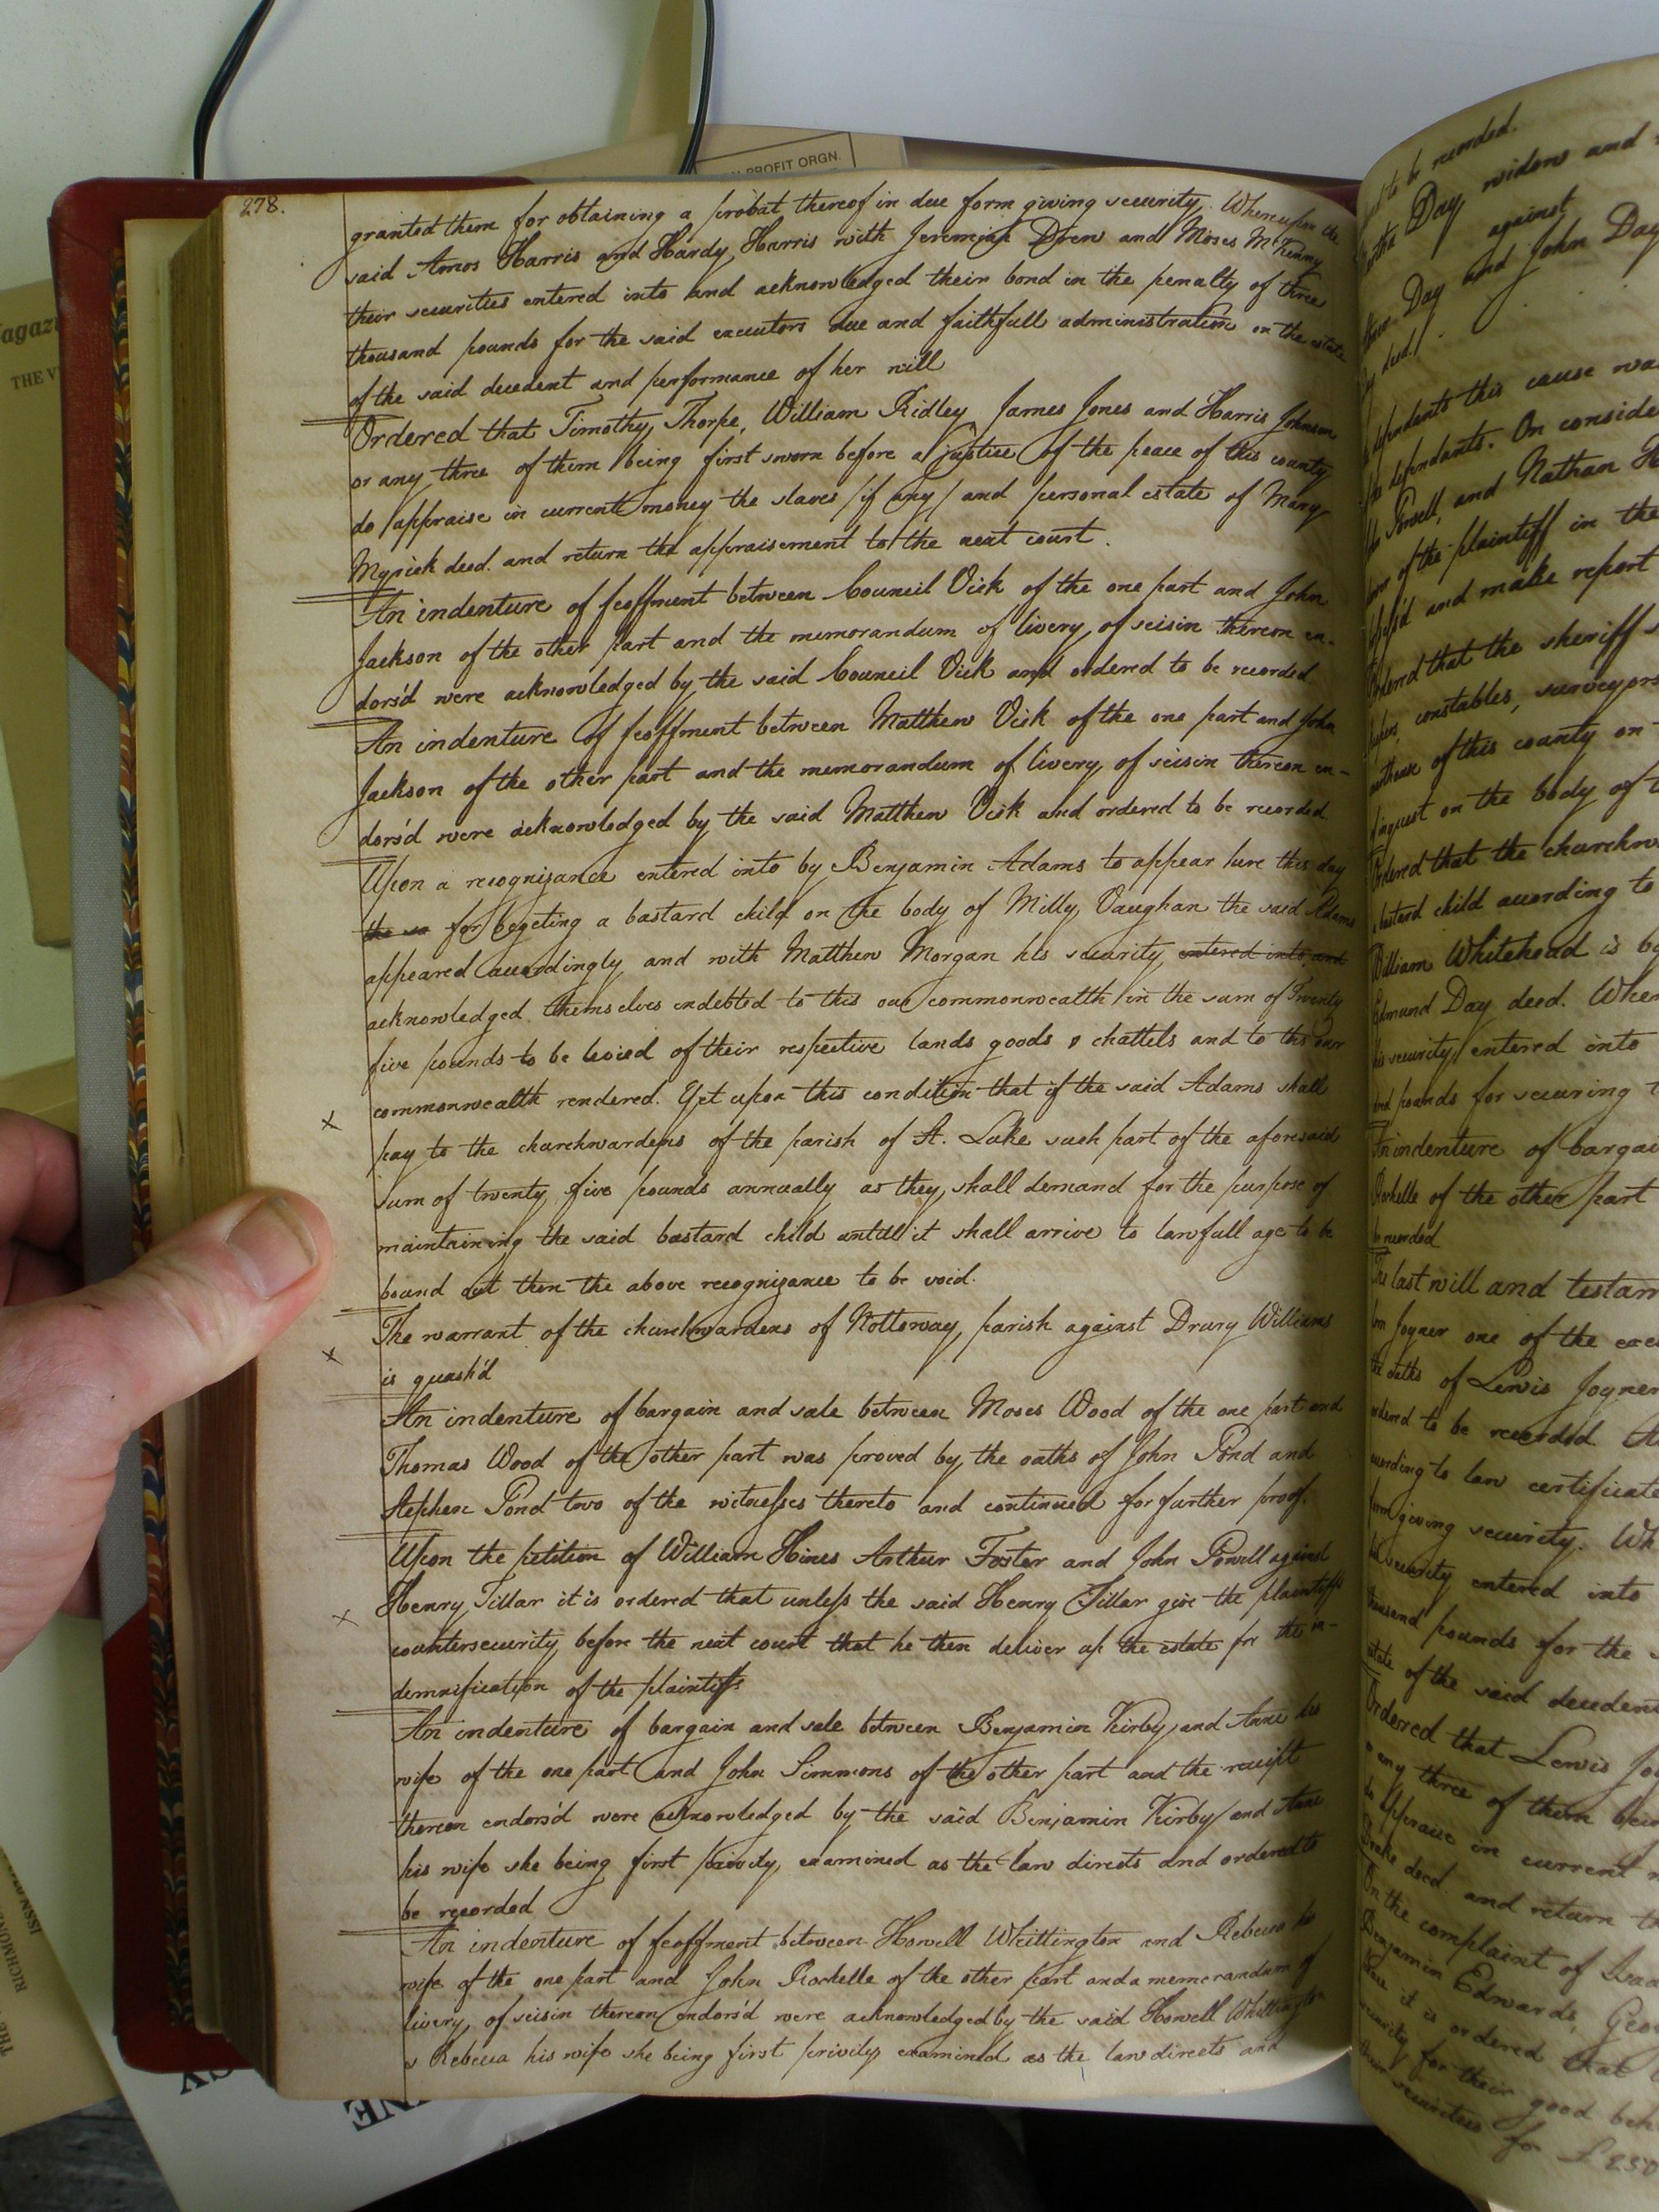 278.
granted them for obtaining a probat thereof in due form giving security. Whereupon the
said Amos Harris and Hardy Harris with Jeremiah Drew and Moses McKenny
their securities entered into and acknowledged their bond in the penalty of three
thousand pounds for the said executors due and faithfull administration on the estate
of the said decedent and performance of her will
Ordered that Timothy Thorpe, William Ridley James Jones and Harris Johnson
or any three of them being first sworn before a justice of the peace of this county
do appraise in current money the slaves /if any/ and personal estate of Mary
Myrick deed. and return the appraisement to the next court.
An indenture of feoffment between Council Vick of the one part and John
Jackson of the other part and the memorandum of livery of seisin thereon en-
dors'd were acknowledged by the said Council Vick and ordered to be recorded
An indenture of feoffment between Matthew Vick of the one part and John
Jackson of the other part and the memorandum of livery of seisin thereon en-
dors'd were acknowledged by the said Matthew Vick and ordered to be recorded
Upon a recognizance entered into by Benjamin Adams to appear here this day
the sa for begeting a bastard child on the body of Milly Vaughan the said Adams
appeared accordingly and with Matthew Morgan his security entered into and
acknowledged themselves indebted to this our commonwealth in the sum of Twenty
five pounds to be levied of their respective lands goods & chattels and to this our
commonwealth rendered. Yet upon this condition that if the said Adams shall
x
pay to the churchwardens of the parish of St. Luke such part of the aforesaid
sum of twenty five pounds annually as they shall demand for the purpose of
maintaining the said bastard child untill it shall arrive to lawfull age to be
bound out then the above recognizance to be void.
The warrant of the churchwardens of Nottoway parish against Drury Williams
x
is quash'd
An indenture of bargain and sale between Moses Wood of the one part and
Thomas Wood of the other part was proved by the oaths of John Pond and
Stephen Pond two of the witnesses thereto and continued for further proof.
Upon the petition of William Hines Arthur Foster and John Powell against
x
Henry Tillar it is ordered that unless the said Henry Tillar give the plaintiffs
countersecurity before the next court that he then deliver up the estate for the in-
demnification of the plaintiffs
An indenture of bargain and sale between Benjamin Kirby and Anne his
wife of the one part and John Simmons of the other part and the receipt
thereon endors'd were acknowledged by the said Benjamin Kirby and Anne
his wife she being first privily examined as the law directs and ordered to
be recorded
An indenture of feoffment between Howell Whittington and Rebecca his
wife of the one part and John Rochelle of the other part and a memorandum of
livery of seisin thereon endors'd were acknowledged by the said Howell Whittington
& Rebecca his wife she being first privily examined as the law directs and
to be recorded.
Day widow and
against
Day and John Day
deed.
defendants this cause was
defendants. On conside
Powell, and Nathan
of the plaintiff in the
and make report
Ordered that the sheriff
constables, surveyors
of this county on
inquest on the body of
Ordered that the churchw
bastard child according to
William Whitehead is
Edmund Day deed. Wher
his security entered into
pounds for securing
An indenture of bargai
Rochelle of the other part
be recorded
The last will and testam
Joyner one of the exe
the oaths of Lewis Joyner
ordered to be recorded.
according to law certificate
form giving security. Wh
his security entered into
thousand pounds for the
estate of the said decedent
Ordered that Lewis Joy
any three of them bein
do appraise in current
deed. and return th
On the complaint of Isaa
Benjamin Edwards, Geo
it is ordered that
security for their good beh
their securities for £250
PROFIT ORGN.
agaz
THE V
ISSN
RICHMOND
THE